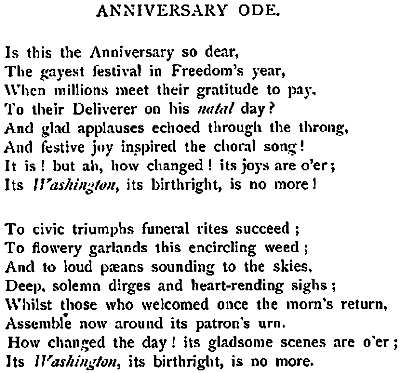 ANNIVERSARY ODE.
Is this the Anniversary so dear,
The gayest festival in Freedom's year,
When millions meet their gratitude to pay,
To their Deliverer on his natal day?
And glad applauses echoed through the throng,
And festive joy inspired the choral song!
It is! but ah, how changed! its joys are o'er;
Its Washington, its birthright, is no more!
To civic triumphs funeral rites succeed;
To flowery garlands this encircling weed;
And to loud pæans sounding to the skies,
Deep, solemn dirges and heart-rending sighs;
Whilst those who welcomed once the morn's return,
Assemble now around its patron's urn.
How changed the day! its gladsome scenes are o'er;
Its Washington, its birthright, is no more.